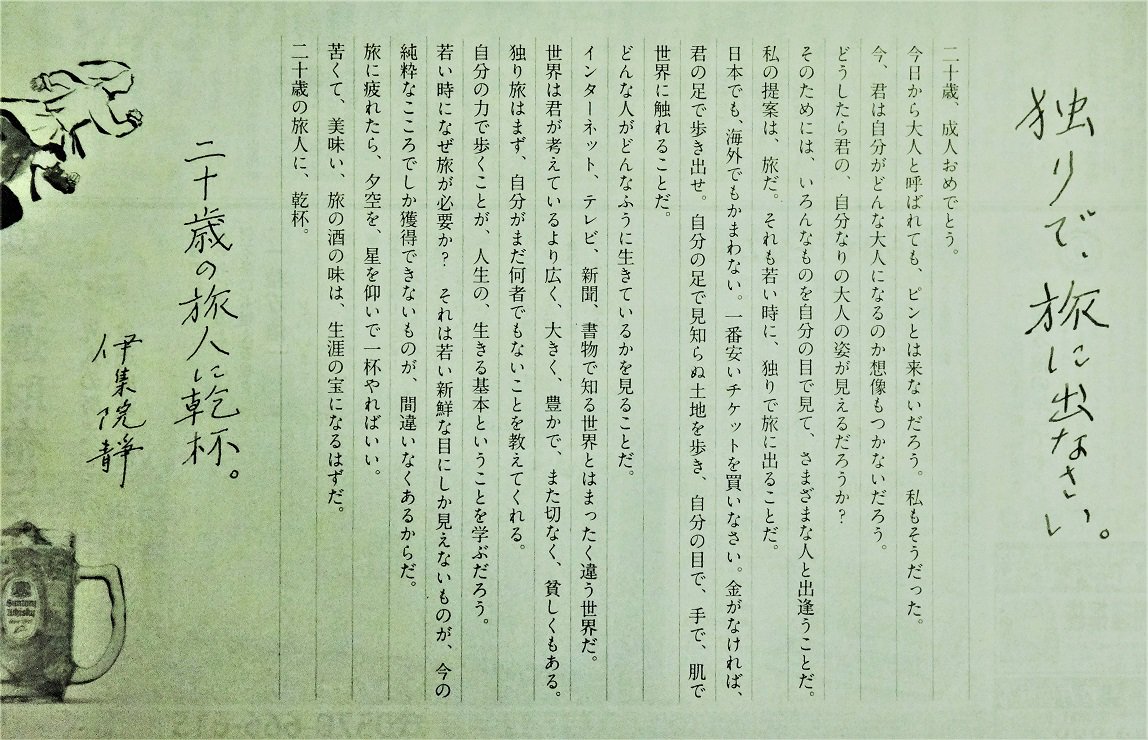 独りで、旅に出なさい。
二十歳、成人おめでとう。
今日から大人と呼ばれても、ピンとは来ないだろう。私もそうだった。
今、君は自分がどんな大人になるのか想像もつかないだろう。
どうしたら君の、自分なりの大人の姿が見えるだろうか?
そのためには、いろんなものを自分の目で見て、さまざまな人と出逢うことだ。
私の提案は、旅だ。それも若い時に、独りで旅に出ることだ。
日本でも、海外でもかまわない。一番安いチケットを買いなさい。金がなければ、
君の足で歩き出せ。自分の足で見知らぬ土地を歩き、自分の目で、手で、肌で
世界に触れることだ。
どんな人がどんなふうに生きているかを見ることだ。
インターネット、テレビ、新聞、書物で知る世界とはまったく違う世界だ。
世界は君が考えているより広く、大きく、豊かで、また切なく、貧しくもある。
独り旅はまず、自分がまだ何者でもないことを教えてくれる。
自分の力で歩くことが、人生の、生きる基本ということを学ぶだろう。
若い時になぜ旅が必要か? それは若い新鮮な目にしか見えないものが、今の
純粋なこころでしか獲得できないものが、間違いなくあるからだ。
旅に疲れたら、夕空を、星を仰いで一杯やればいい。
苦くて、美味い、旅の酒の味は、生涯の宝になるはずだ。
二十歳の旅人に、乾杯。
二十歳の旅人に乾杯。
伊集院静
Suntory
Whisky